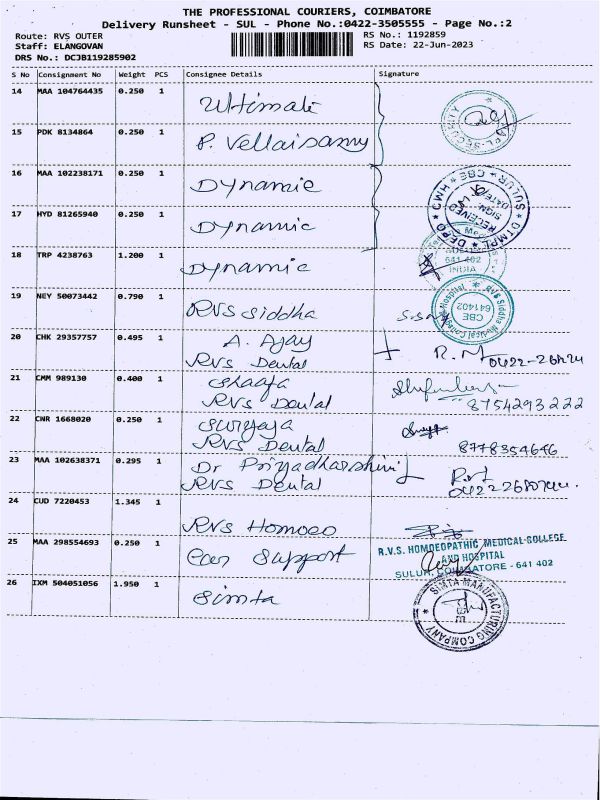 THE PROFESSIONAL COURIERS, COIMBATORE
Delivery Runsheet - SUL - Phone No.:0422-3505555 - Page No.:2
Route: RVS OUTER
RS No.: 1192859
Staff: ELANGOVAN
RS Date: 22-Jun-2023
DRS No.: DCJB119285902
S No Consignment No Weight PCS Consignee Details Signature
14 MAA 104764435 0.250 1 Ultimate
15 PDK 8134864 0.250 1 P. Vellaisamy
16 MAA 102238171 0.250 1 Dynamic
17 HYD 81265940 0.250 1 Dynamic
RECEIVED
SIGN.
DATE
DTMPL * DEPO * CWH * CBE * SULUR
18 TRP 4238763 1.200 1 Dynamic
641 402
INDIA
19 NEY 50073442 0.790 1 RVS Siddha
RVS Siddha Medical College & Hospital
CBE
641402
20 CHK 29357757 0.495 1 A. Ajay
RVS Dental
R.M
21 CMM 989130 0.400 1
RVS Dental
8754293222
22 CNR 1668020 0.250 1
RVS Dental
8778354646
23 MAA 102638371 0.295 1 Dr Priyadharshini
RVS Dental
24 CUD 7220453 1.345 1
RVS Homoeo
25 MAA 298554693 0.250 1 Support
R.V.S. HOMOEOPATHIC MEDICAL COLLEGE
AND HOSPITAL
SULUR, COIMBATORE - 641 402
26 IXM 504051056 1.950 1 Simta
SIMTA MANUFACTURING COMPANY